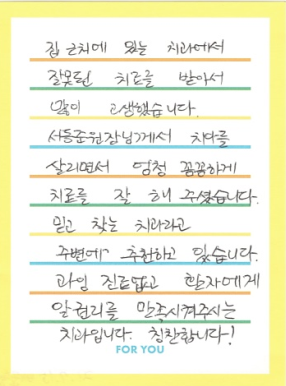 집 근처에 있는 치과에서
잘못된 치료를 받아서
많이 고생했습니다.
서동준원장님께서 치아를
살리면서 엄청 꼼꼼하게
치료를 잘 해 주셨습니다.
믿고 찾는 치과라고
주변에 추천하고 있습니다.
과잉 진료없고 환자에게
알권리를 만족시켜주시는
치과입니다. 칭찬합니다!
FOR YOU